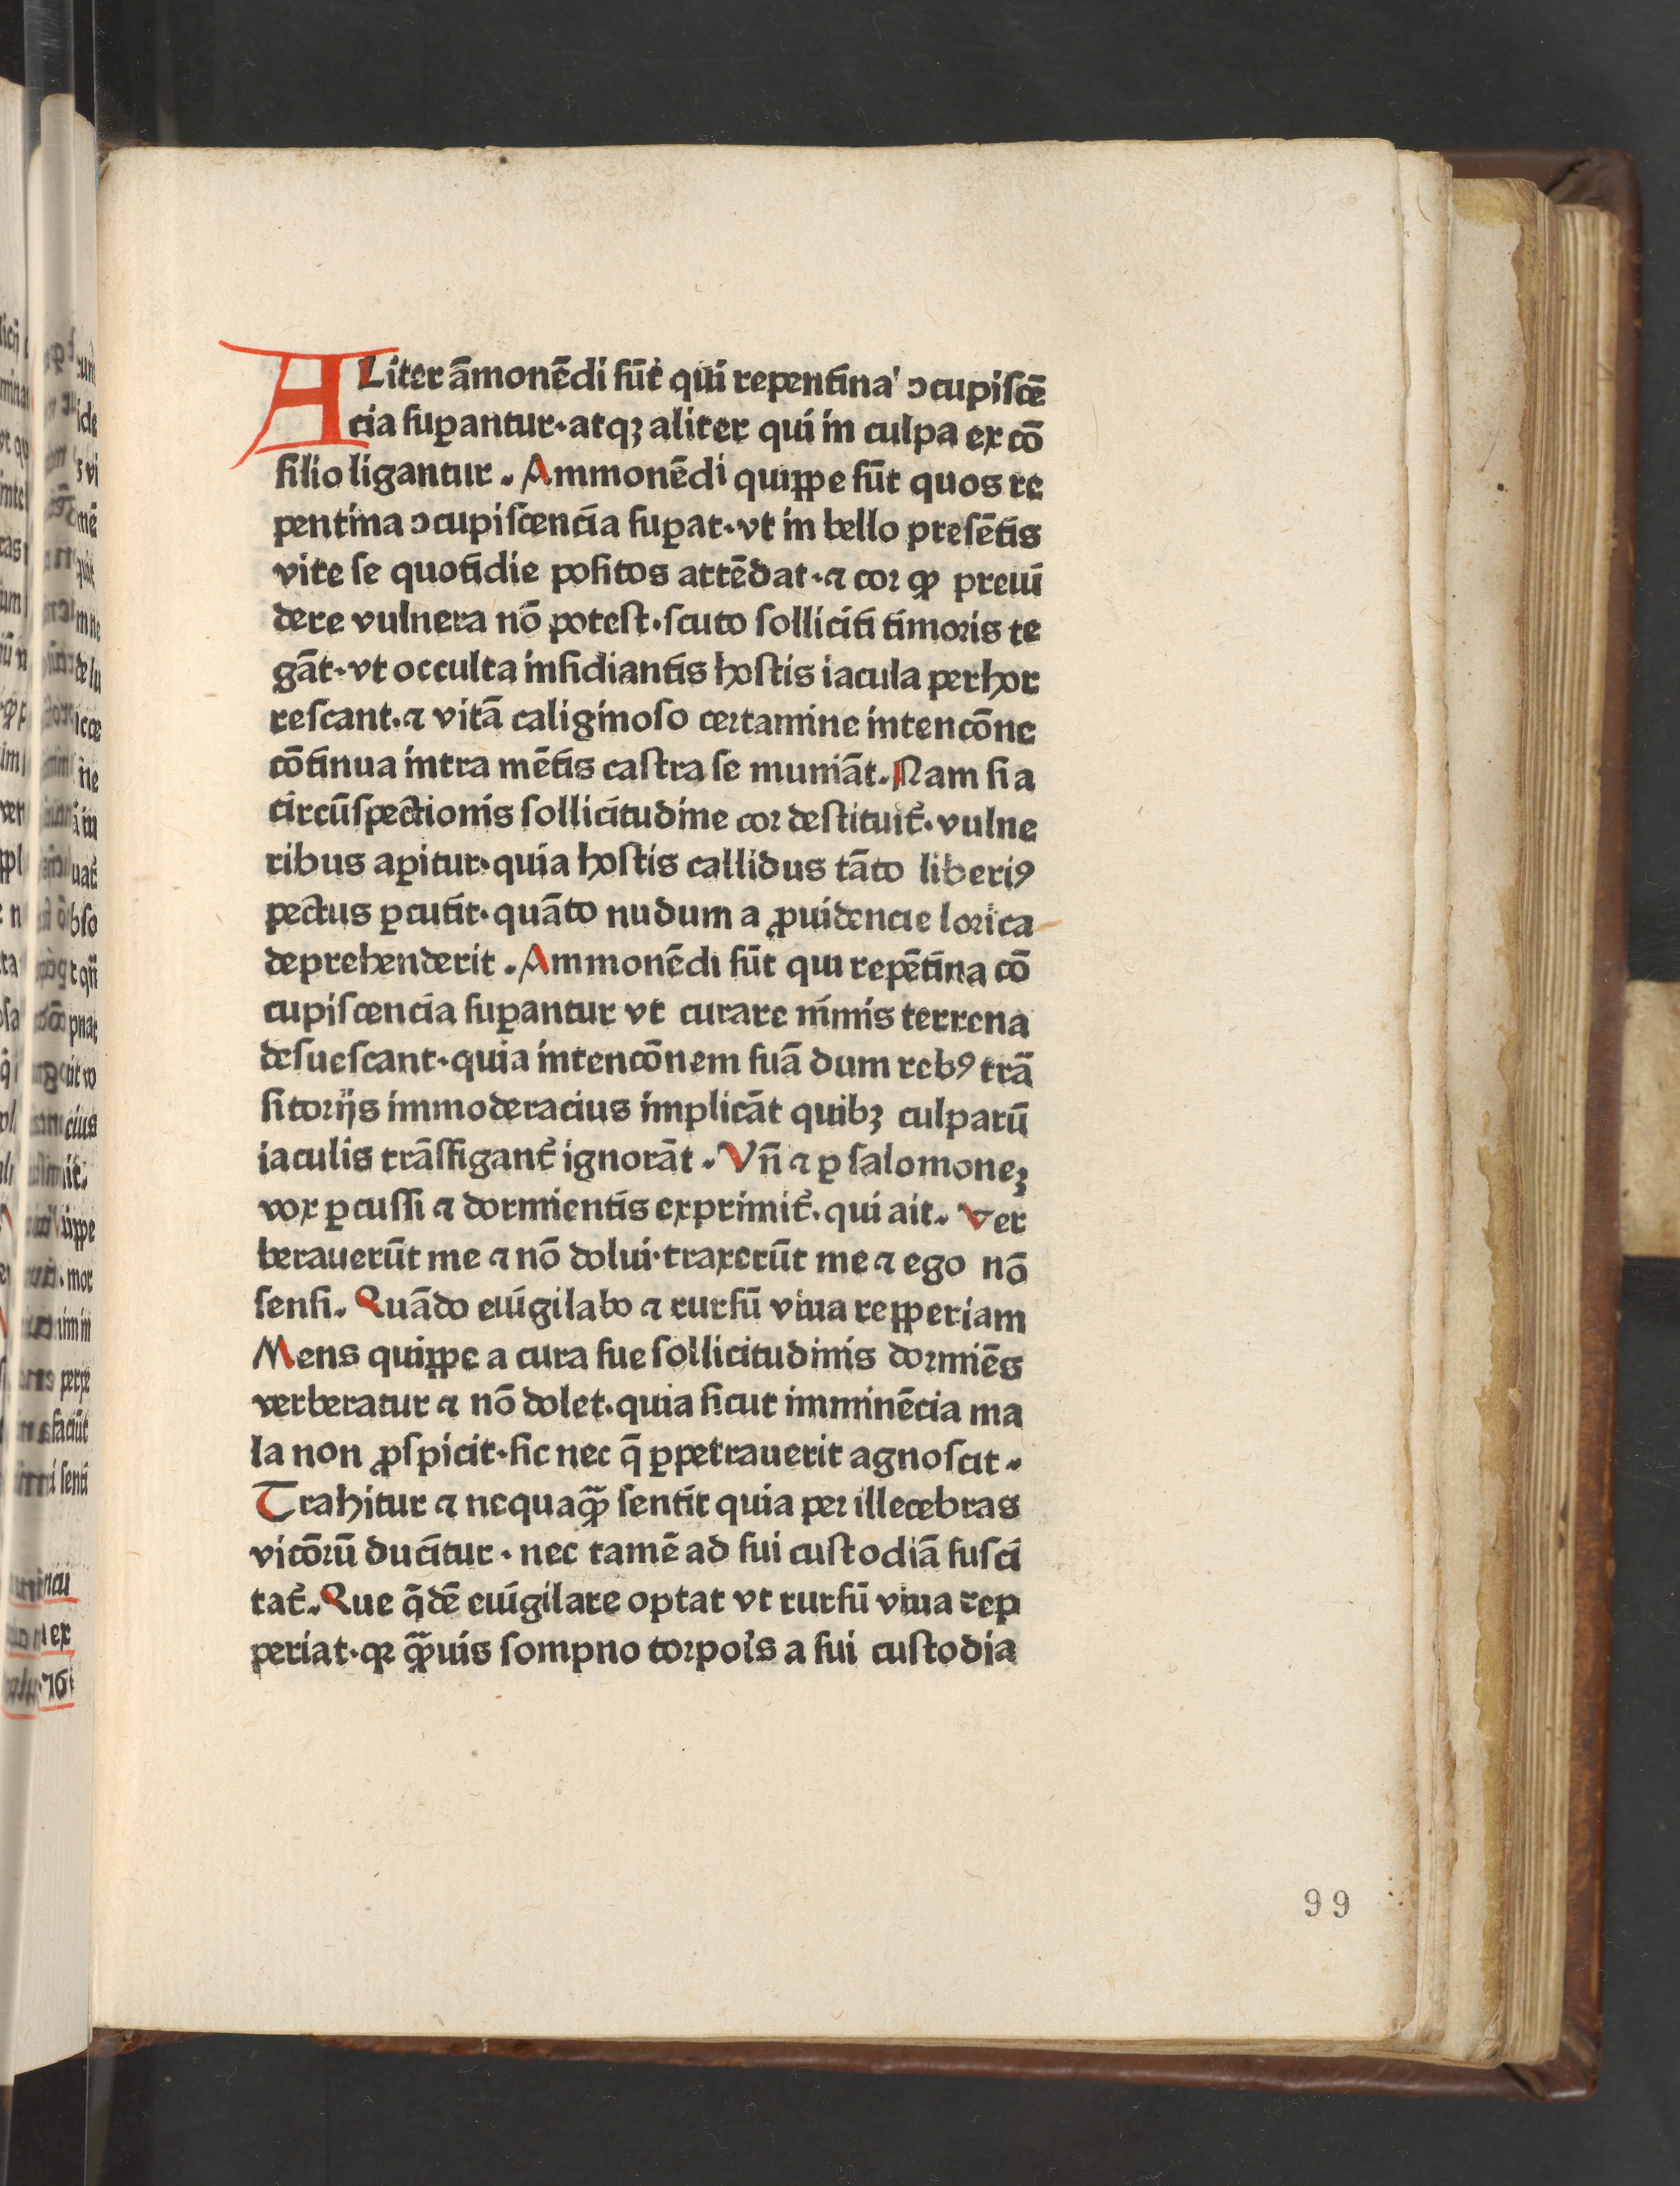 ALiter āmonēdi sūt qui repentina ɔcupiscē
cia suꝑantur·atqꝫ aliter qui in culpa ex cō
silio ligantur. Ammonēdi quippe sūt quos re
pentina ɔcupiscencia suꝑat·vt in bello presētis
vite se quotidie positos attēdat·⁊ cor ꝙ preui
dere vulnera nō potest·scuto solliciti timoris te
gāt·vt occulta insidiantis hostis iacula perhor
rescant·⁊ vitā caliginoso certamine intencōne
cōtinua intra mētis castra se muniāt. Nam si a
circūspectionis sollicitudine cor destituit̄·vulne
ribus aꝑitur·quia hostis callidus tāto liberiꝯ
pectus ꝑcutit·quāto nudum a ꝓuidencie lorica
deprehenderit. Ammonēdi sūt qui repētina cō
cupiscencia suꝑantur vt curare nimis terrena
desuescant·quia intencōnem suā dum rebꝯ trā
sitorijs immoderacius implicāt quibꝫ culparū
iaculis trāsfigant̄ ignorāt. Vn̄ ⁊ ꝑ salomoneꝫ
vox ꝑcussi ⁊ dormientis exprimit̄·qui ait. Ver
berauerūt me ⁊ nō dolui·traxerūt me ⁊ ego nō
sensi. Quādo euigilabo ⁊ rursū vina repperiam
Mens quippe a cura sue sollicitudinis dormiēs
verberatur ⁊ nō dolet·quia sicut imminēcia ma
la non ꝓspicit·sic nec q̄ ꝑpetrauerit agnoscit.
Trahitur ⁊ nequaꝙ̄ sentit quia per illecebras
vicōrū ducitur·nec tamē ad sui custodiā susci
tat̄. Que q̄dē euigilare optat vt rursū vina rep
periat·qꝛ ꝙ̄uis sompno torpoīs a sui custodia
99